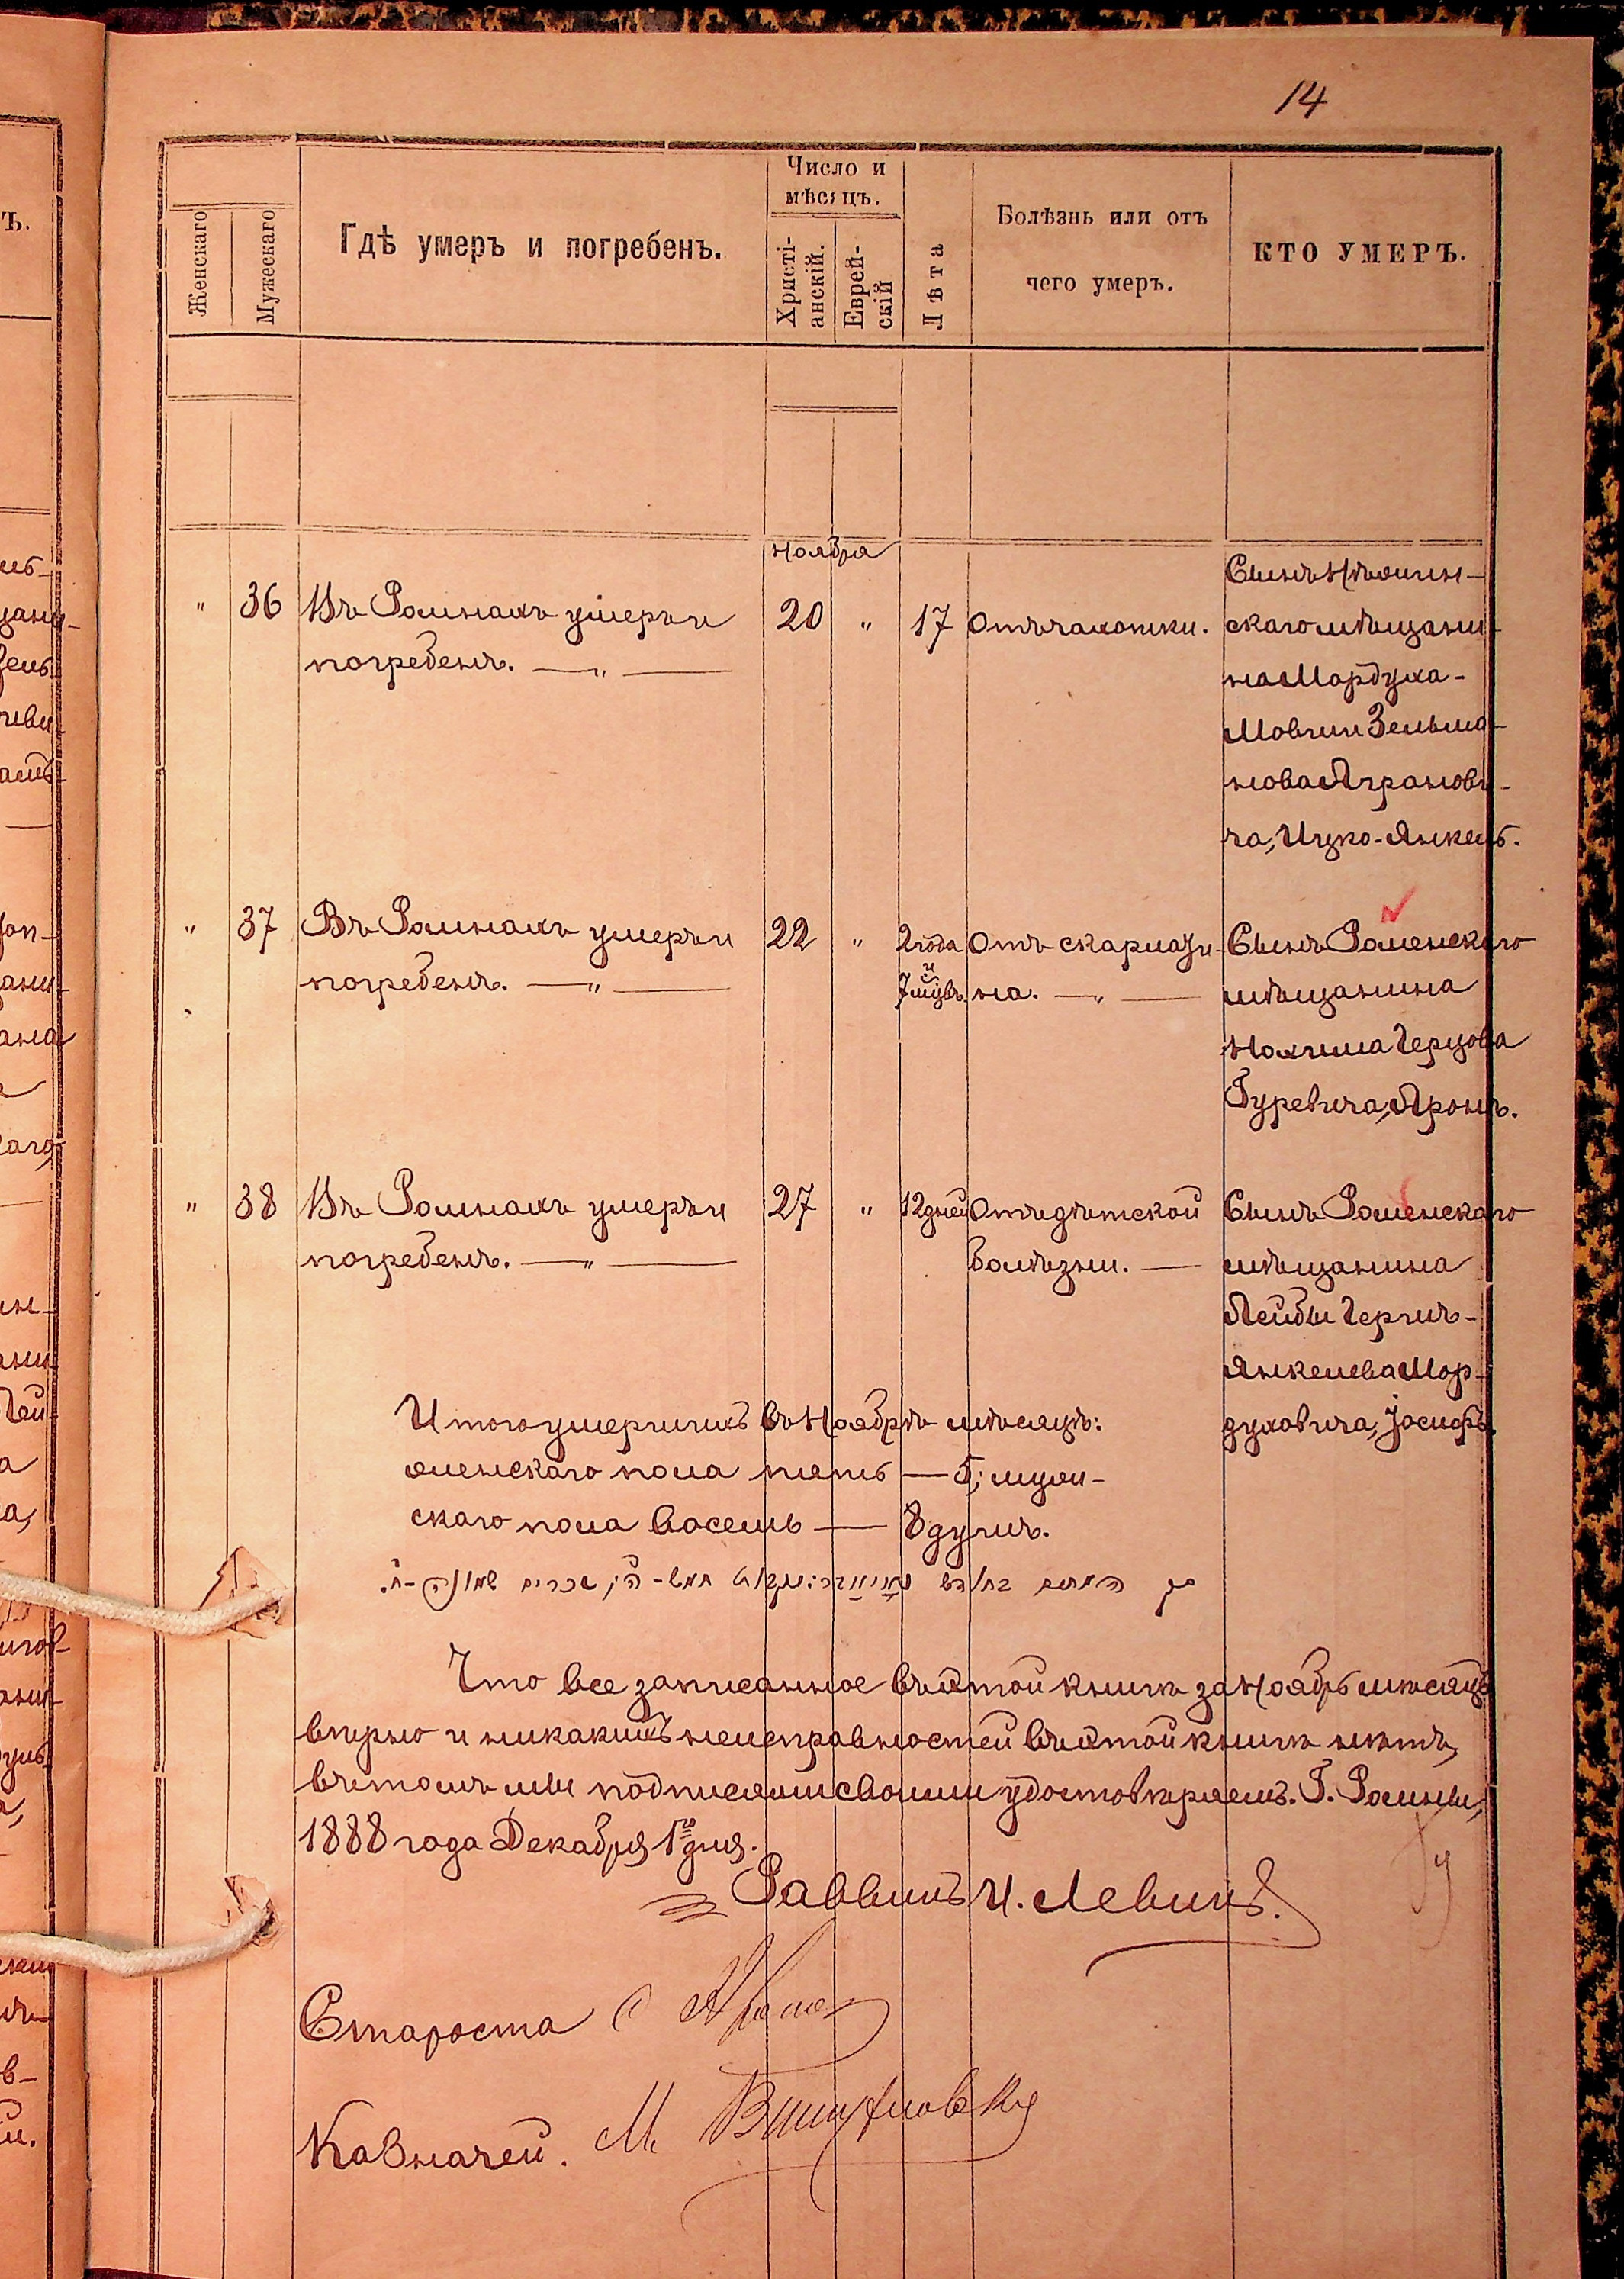 14
Женскаго
Мужескаго
Гдѣ умеръ и погребенъ.
Число и
мѣсяцъ.
Христі-
анскій.
Еврей-
скій
Лѣта
Болѣзнь или отъ
чего умеръ.
КТО УМЕРЪ.
Ноября
" 36 Въ Ромнахъ умеръ и 20 " 17 Отъ чахотки.
погребенъ. — " —
Сынъ Нѣжин-
скаго мѣщани-
на Мордуха-
Мовши Зельма-
нова Аграnови-
ча, Ицко-Янкель.
" 37 Въ Ромнахъ умеръ и 22 " 2 года Отъ скарлати-
погребенъ. — " — и 7 мѣс. на. — " —
Сынъ Роменскаго
мѣщанина
Нохима Герцова
Гуревича, Аронъ.
" 38 Въ Ромнахъ умеръ и 27 " 12 дней Отъ дѣтской
погребенъ. — " — болѣзни. —
Сынъ Роменскаго
мѣщанина
Лейбы Гершъ-
Янкелева Мор-
духовича, Іосифъ.
Итого умершихъ въ Ноябрѣ мѣсяцѣ:
женскаго пола пять — 5, муж-
скаго пола восемь — 8 душъ.
Что все записанное въ этой книгѣ за Ноябрь мѣсяцъ
вѣрно и никакихъ неисправностей въ этой книгѣ нѣтъ,
въ томъ мы подписями своими удостовѣряемъ. Г. Ромны,
1888 года Декабря 1го дня.
Раввинъ И. Левинъ.
Староста
Казначей. М.